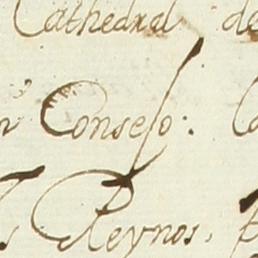 Cathedral de
Consejo:
Reynos,